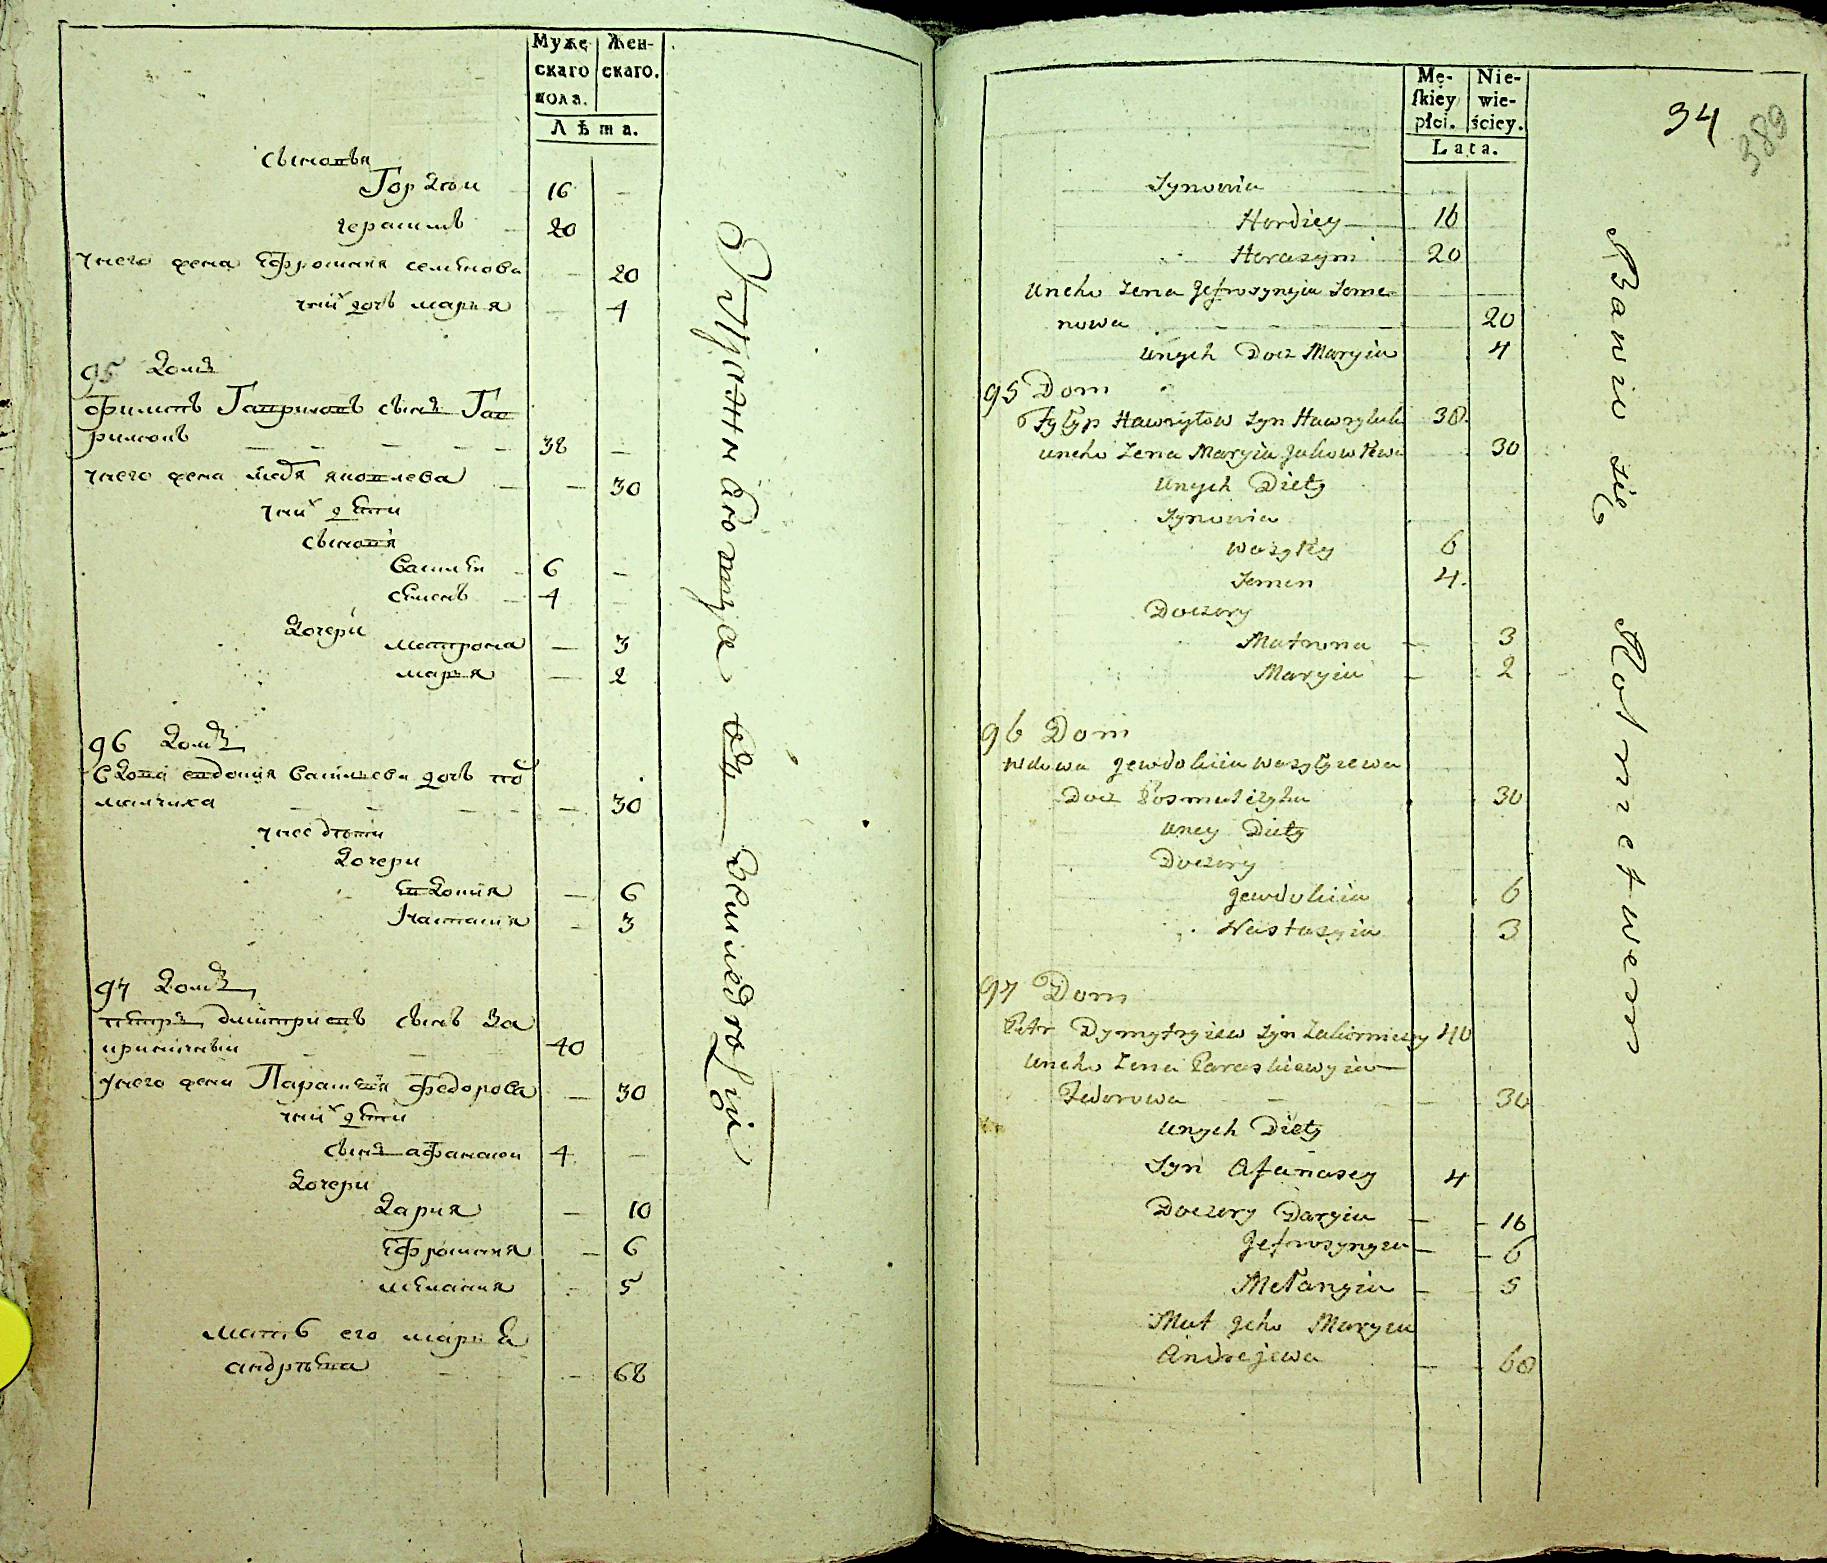 Муже
скаго
пола.
Жен-
скаго.
Лѣта.
сыновя
Гордѣи 16 –
герасимъ 20
унего жена Ефросиния семенова – 20
унихъ дочъ мария – 4
95 домъ
Филипъ Гавриловъ сынъ Гав
риловъ 38 –
унего жена яковлева – 30
унихъ дѣти
сыновя
Василеи 6 –
семенъ 4 –
дочери
матрона – 3
мария – 2
96 домъ
вдова евдокия Василева дочъ
– 30
унее дети
дочери
Евдокия – 6
Настасия – 3
97 домъ
петръ дмитриевъ сынъ За
40
унего жена Параскевия Федорова – 30
унихъ дѣти
сынъ афанасеи 4 –
дочери
Дария – 10
Ефросиния – 6
мелания – 5
мать его мария
андреева – 68
Упражняются въ земледелѣи
Mę-
skiéy
płci.
Nie-
wie-
ściey.
Lata.
34
389
Synowia
Hordiey 16
Herasym 20
Uneho Zena Jefrosyneja Seme
nowa 20
Unych Docz Maryia 4
95 Dom
Fyłyp Hawryłow Syn Hawryluk 38.
Uneho Zena Maryia Jakowlewa 30
Unych Diety
Synowia
Wasyłey 6
Semen 4.
Doczery
Matrona – 3
Maryia – 2
96 Dom
Wdowa Jewdokiia Wasylyzewa
Docz 30
Uney Diety
Doczery
Jewdokiia 6
Nastasyia 3
97 Dom
Petr Dymytryiew Syn 40
Uneho Zena Paraskiewyia
Fedorowa – 30
Unych Diety
Syn Afanasey 4
Doczery Daryia – 10
Jefrosynyia – 6
Mełanyia – 5
Mat Jeho Maryia
Andrejewa – 68
Bawio się Rolnictwem